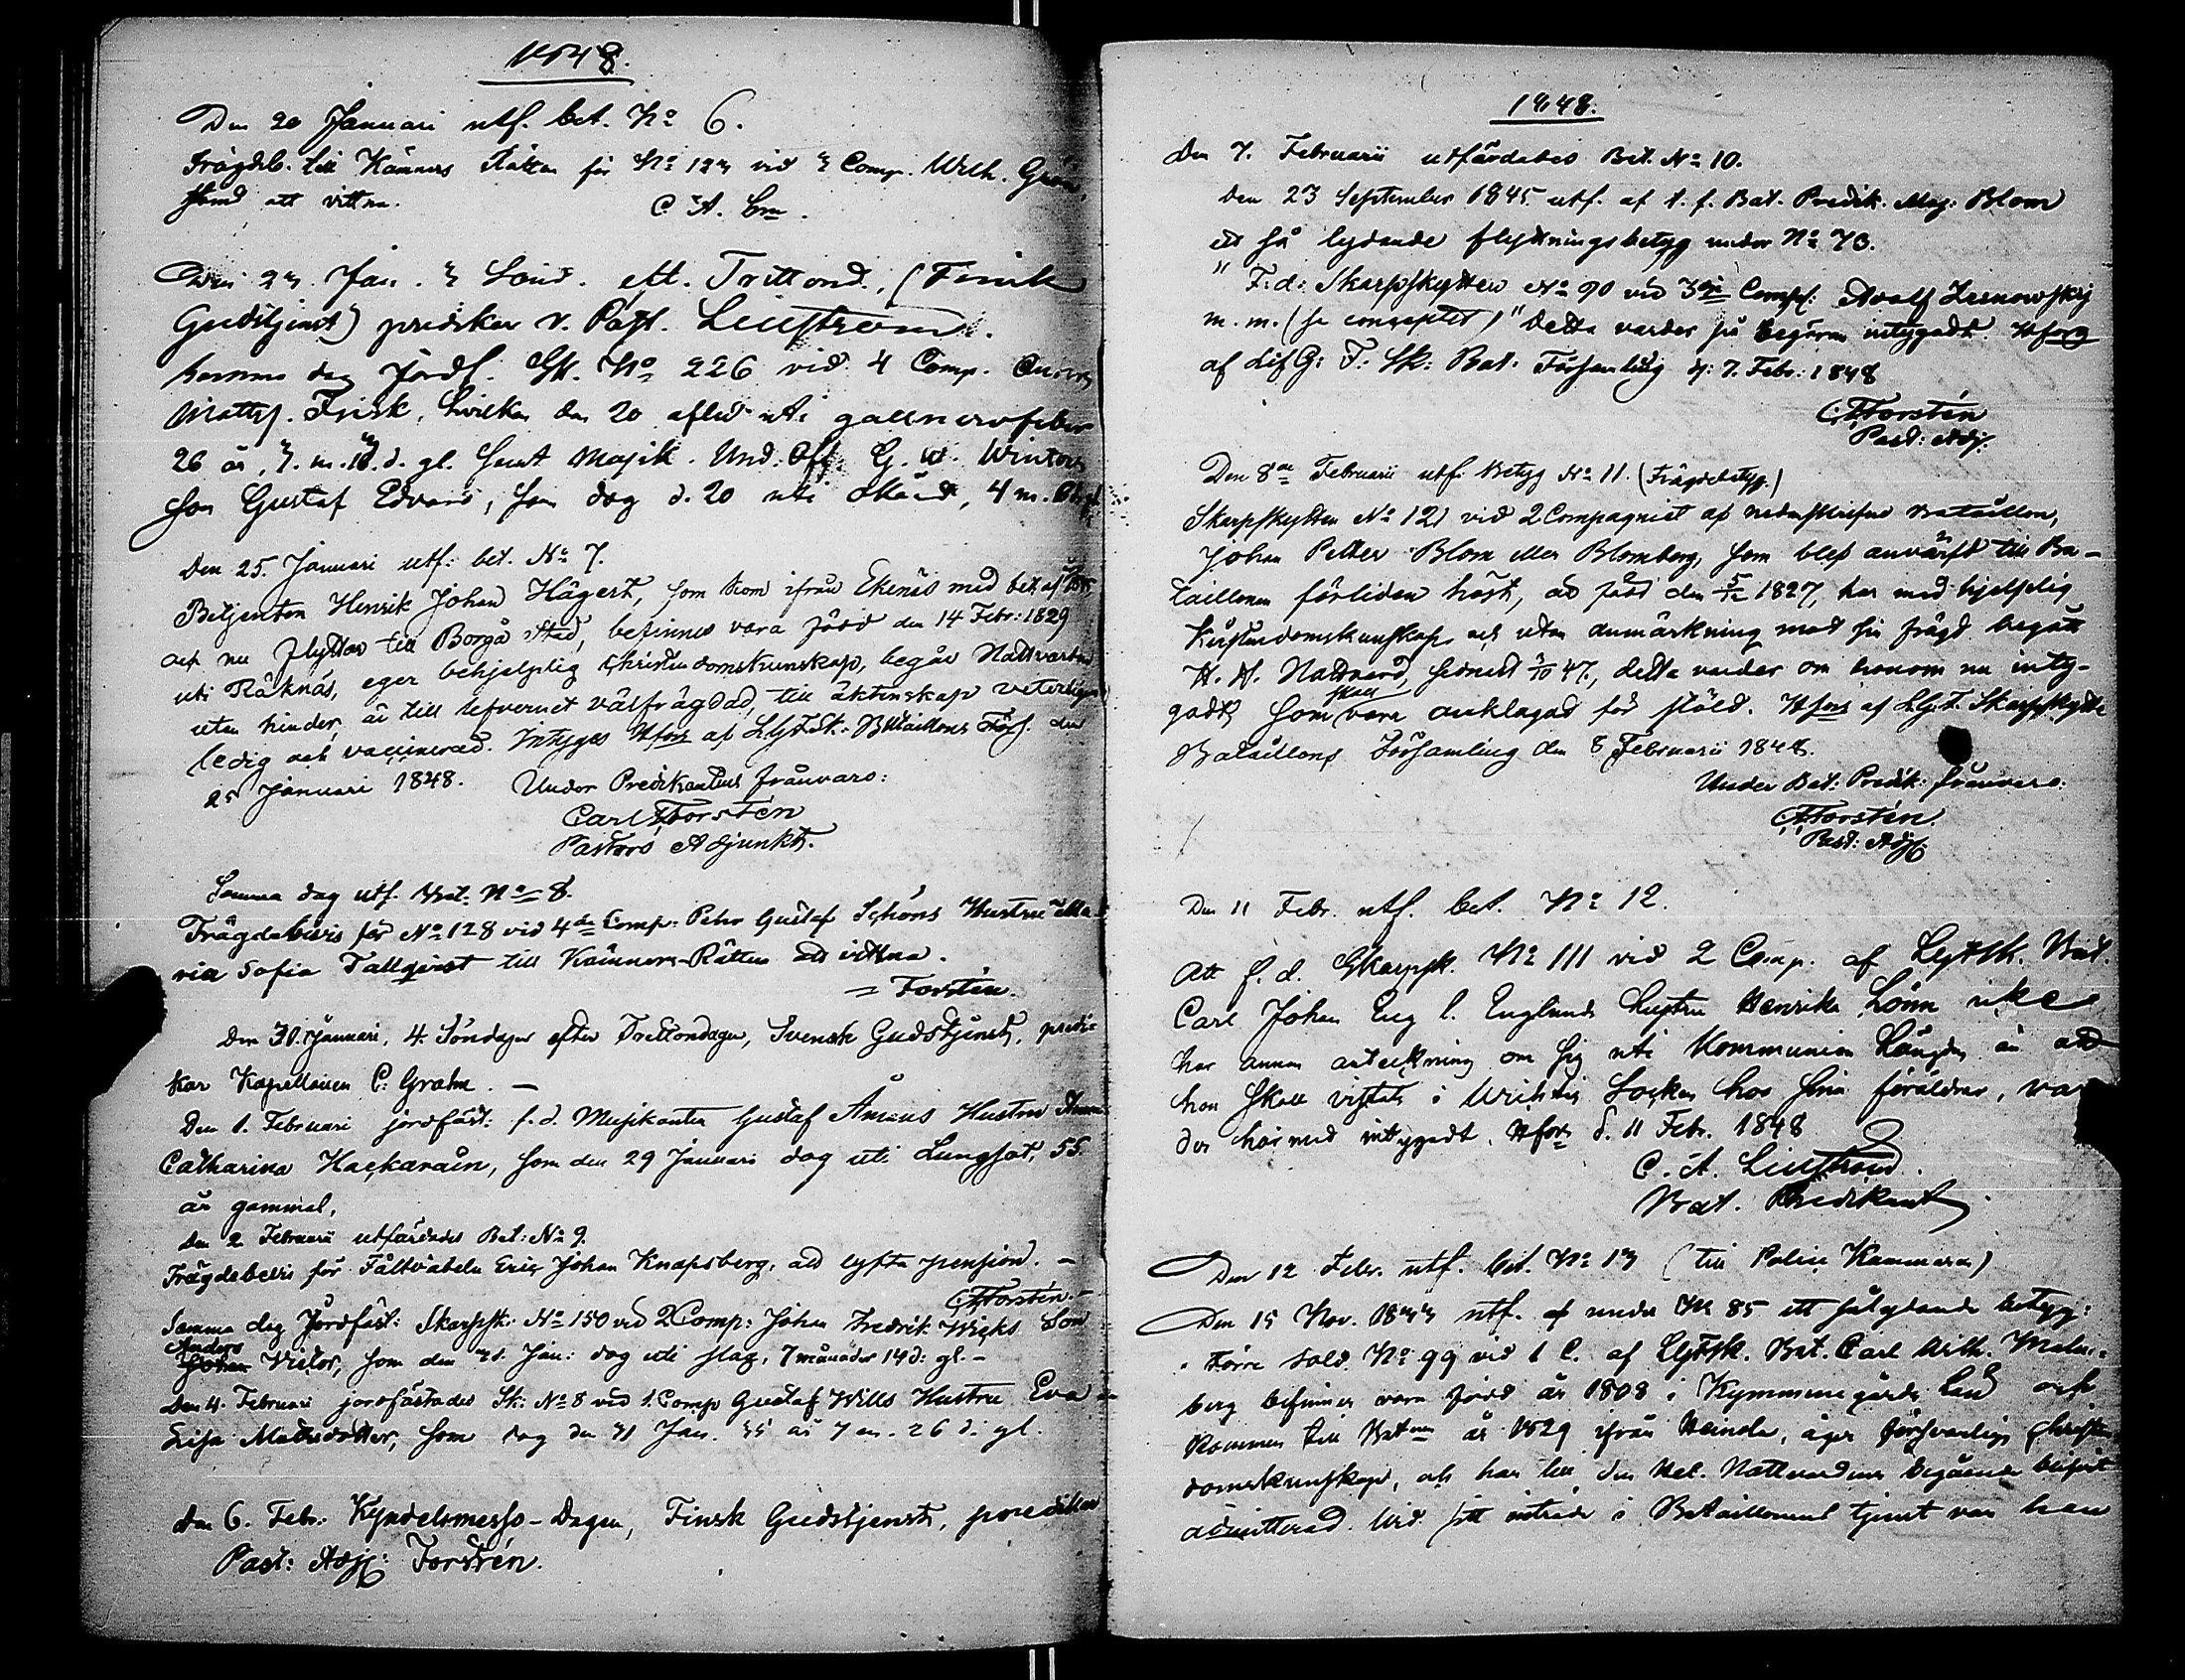 1848.
Den 20 Januari utf. bet. No 6.
Frägdeb. till Kämners Rätten för No 123 vid 3 Comp. Wilh. Grön
strand att vittna. C. A. Lm.
Den 23. Jan. 3 Sönd. eft. Trettond., (Finsk
Gudstjenst) predikar v. Past. Liliestrand.
samma dag jordf. Sk. No 226 vid 4 Comp. Anders
Mattss. Frisk, hvilken den 20 afled uti gallnervfeber
26 år, 7. m. 18. d. gl. samt Musik. Und. Off. G. W. Winters
son Gustaf Edvard, som dog d. 20 uti okänd, 4 m.
Den 25. Januari utf: bet. No 7.
Betjenten Henrik Johan Hägert, som kom ifrån Ekenäs med bet. af
och nu flyttar till Borgå stad, befinnes vara född den 14 Febr: 1829
uti Räknäs, eger behjelplig Christendomskunskap, begår Nattvarden
utan hinder, är till lefvernet välfrägdad, till äktenskap veterligen
ledig och vaccinerad. Intygas Hfors af LGFSk: Bataillons Förs. den
25 Januari 1848. Under Predikantens frånvaro:
Carl Forstén
Pastors Adjunkt.
Samma dag utf. Bet. No 8.
Frägdebevis för No 128 vid 4de Comp: Pehr Gustaf Schöns Hustru Ma-
ria Sofia Tallqvist till Kämners-Rätten att vittna.
Forstén.
Den 30. Januari, 4. Söndagen efter Trettondagen, Svensk Gudstjenst, predi-
kar Kapellanen C: Grahn. —
Den 1. Februari jordfäst: f. d. Musikanten Gustaf Åmans Hustru Anna
Catharina Hackarain, som den 29 Januari dog uti Lungsot, 55
år gammal,
Den 2 Februarii utfärdades Bet: No 9.
Frägdebevis för Fältväbeln Eric Johan Knapsberg, att lyfta pension. —
CForstén.
Samma dag Jordfäst: Skarpsk: No 150 vid 2 Comp: Johan Fredrik Wicks Son
Anders
Johan Victor, som den 31. Jan: dog uti slag, 7 månader 14 d: gl. —
Den 4. Februari jordfästades Sk: No 8 vid 1. Comp Gustaf Wills Hustru Eva
Lisa Matsdotter, som dog den 31 Jan. 35 år 7 m. 26 d. gl.
den 6. Febr. Kyndelsmesso-Dagen, Finsk Gudstjenst, predikar
Past: Adj: Forstén.
1848.
Den 7. Februarii utfärdades Bet. No 10.
den 23 September 1845 utf. af t. f. Bat. Predik. Mag: Blom
ett så lydande flyttningsbetyg under No 73.
"F. d: Skarpskytten No 90 vid 3dje Comp: Adolf Zrenowskij
m. m. (se conceptet)" detta varder på begäran intygadt. Hfors
af Lif G: F: Sk: Bat: Församling d: 7. Febr: 1848
CForstén
Past: Adj.
Den 8de Februarii utf. Betyg No 11. (Frägdebetyg.)
Skarpskytten No 121 vid 2 Compagniet af nedanskrifne Bataillon,
Johan Petter Blom eller Blomberg, som blef anvärfd till Ba-
taillonen förliden höst, är född den 5/12 1827, har med hjelplig
Kristendomskunskap och utan anmärkning mot sin frägd begått
H. H. Nattvard, sednast 3/10 47., detta varder om honom nu inty-
gadt, som skall vara anklagad för stöld. Hfors af LGF. Skarpskytte
Bataillons Församling den 8 Februarii 1848.
Under Bat: Predik: frånvaro:
CForstén.
Past: Adj:
Den 11 Febr. utf. bet. No 12.
Att f. d. Skarpsk. No 111 vid 2 Comp. af LGFSk. Bat.
Carl Johan Eng l. Englunds hustru Henrika Lönn icke
har annan anteckning om sig uti Kommunion Längden än att
hon skall vistats i Wichtis Socken hos sina föräldrar, var
der härmed intygadt, Hfors d. 11 Febr. 1848
C. A. Liliestrand.
Bat. Predikant
Den 12 Febr. utf. bet. No 13 (till Police Kammaren)
Den 15 Nov. 1833 utf. af under No 85 ett sålydande betyg:
Förre Sold. No 99 vid 1 C. af LGFSk. Bat. Carl Wilh. Malm-
berg befinnes vara född år 1808 i Kymmenegårds Län och
kommen till Batnen år 1829 ifrån Heinola, äger försvarlig Christen
domskunskap, och har till den Hel. Nattvardens begående blifvit
admitterad. Wid sitt inträde i Bataillonens tjenst var han